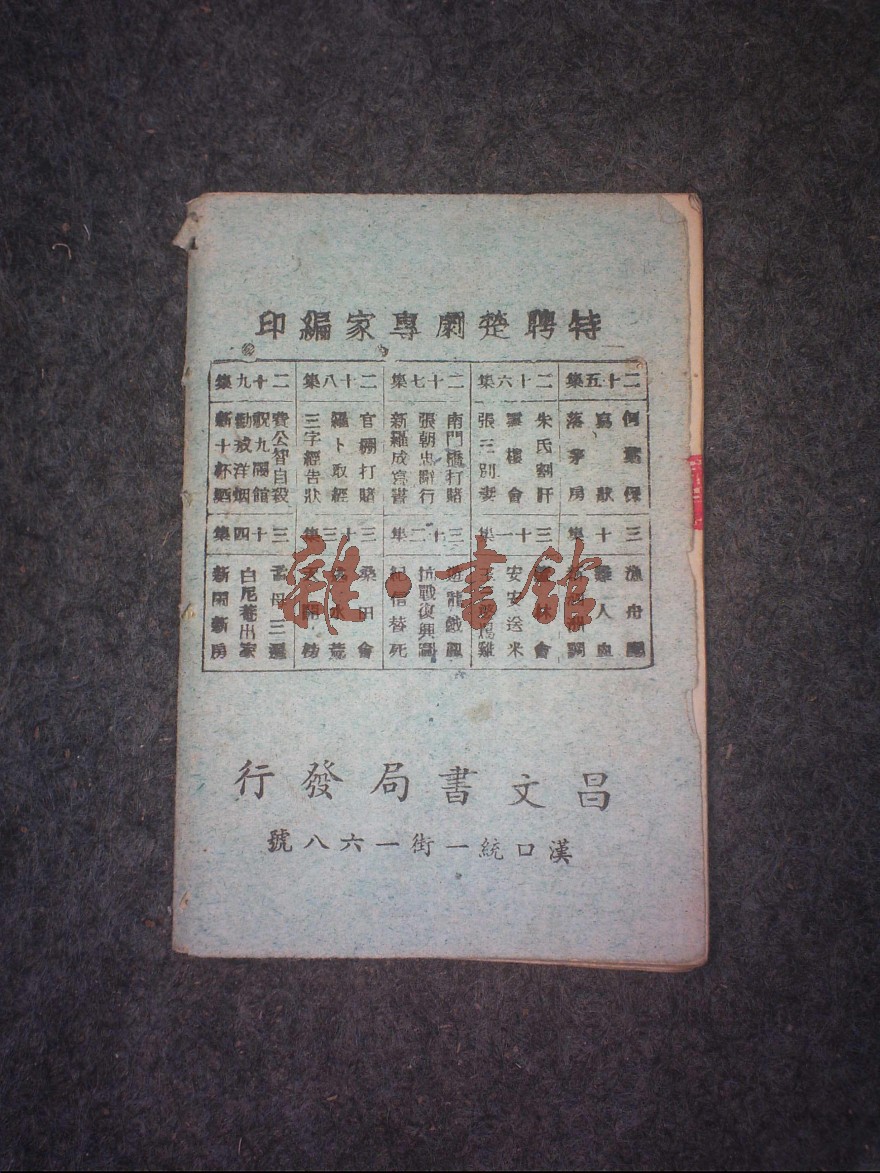 特聘楚劇專家編印
二十五集
寫狀
落茅房
二十六集
朱氏割肝
樓會
張三別妻
二十七集
南門橋打賭
張朝忠辭行
新羅成寫書
二十八集
官棚打賭
羅卜取經
三字經告狀
二十九集
費公智自殺
祝九閙館
勸戒洋烟
新十杯酒
三十集
漁舟
人血
三十一集
林會
安安送米
三十二集
遊龍戲鳳
抗戰復興圖
紀信替死
三十三集
桑田會
水荒
三十四集
孟母三遷
白尼菴出家
新閙新房
雜·書館
昌文書局發行
漢口統一街一六八號